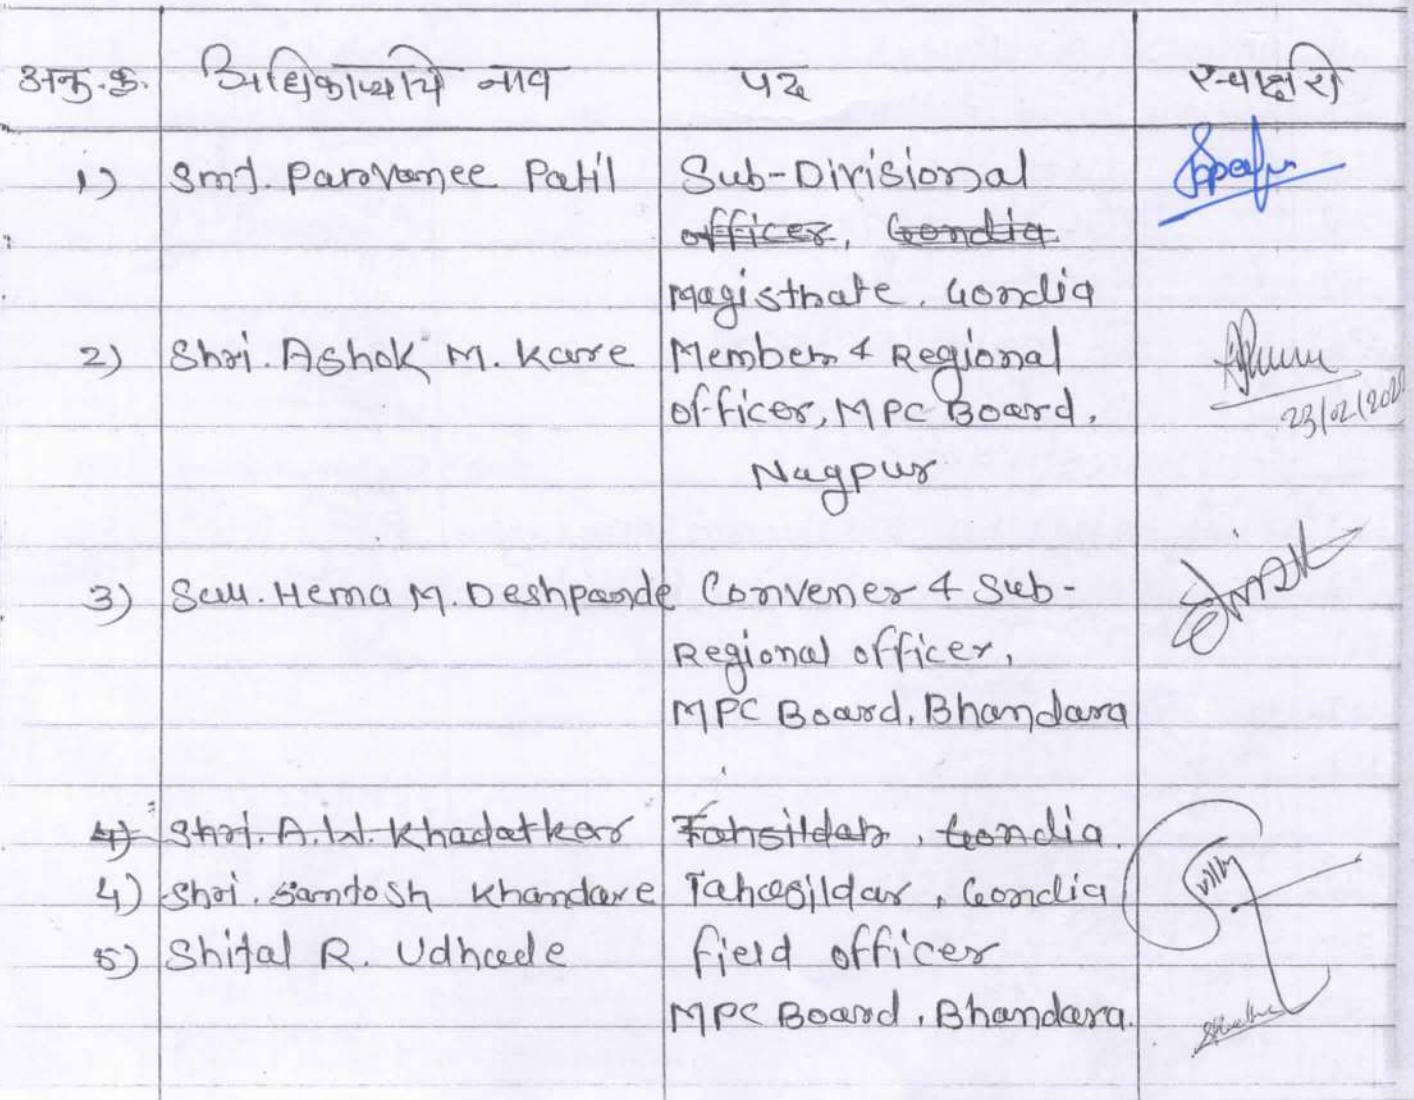 अनु.क्र. अधिकाऱ्याचे नाव पद स्वाक्षरी
1) Smt. Parvanee Patil Sub-Divisional
officer, Gondia
Magistrate. Gondia
2) Shri. Ashok M. Kare Member & Regional
officer, MPC Board,
23/02/202
Nagpur
3) Sau. Hema M. Deshpande Convener & Sub-
Regional officer,
MPC Board, Bhandara
4) Shri. A.W. Khadatkar Tahsildar, Gondia.
4) Shri. Santosh Khandare Tahasildar, Gondia
5) Shital R. Udhade field officer
MPC Board, Bhandara.